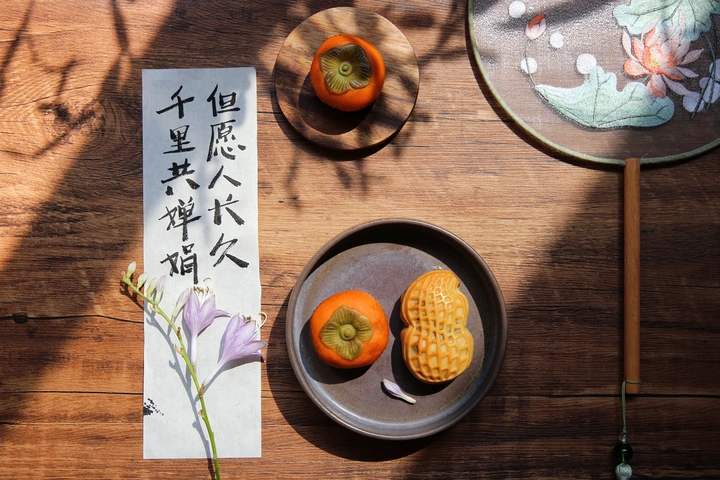 但愿人长久
千里共婵娟